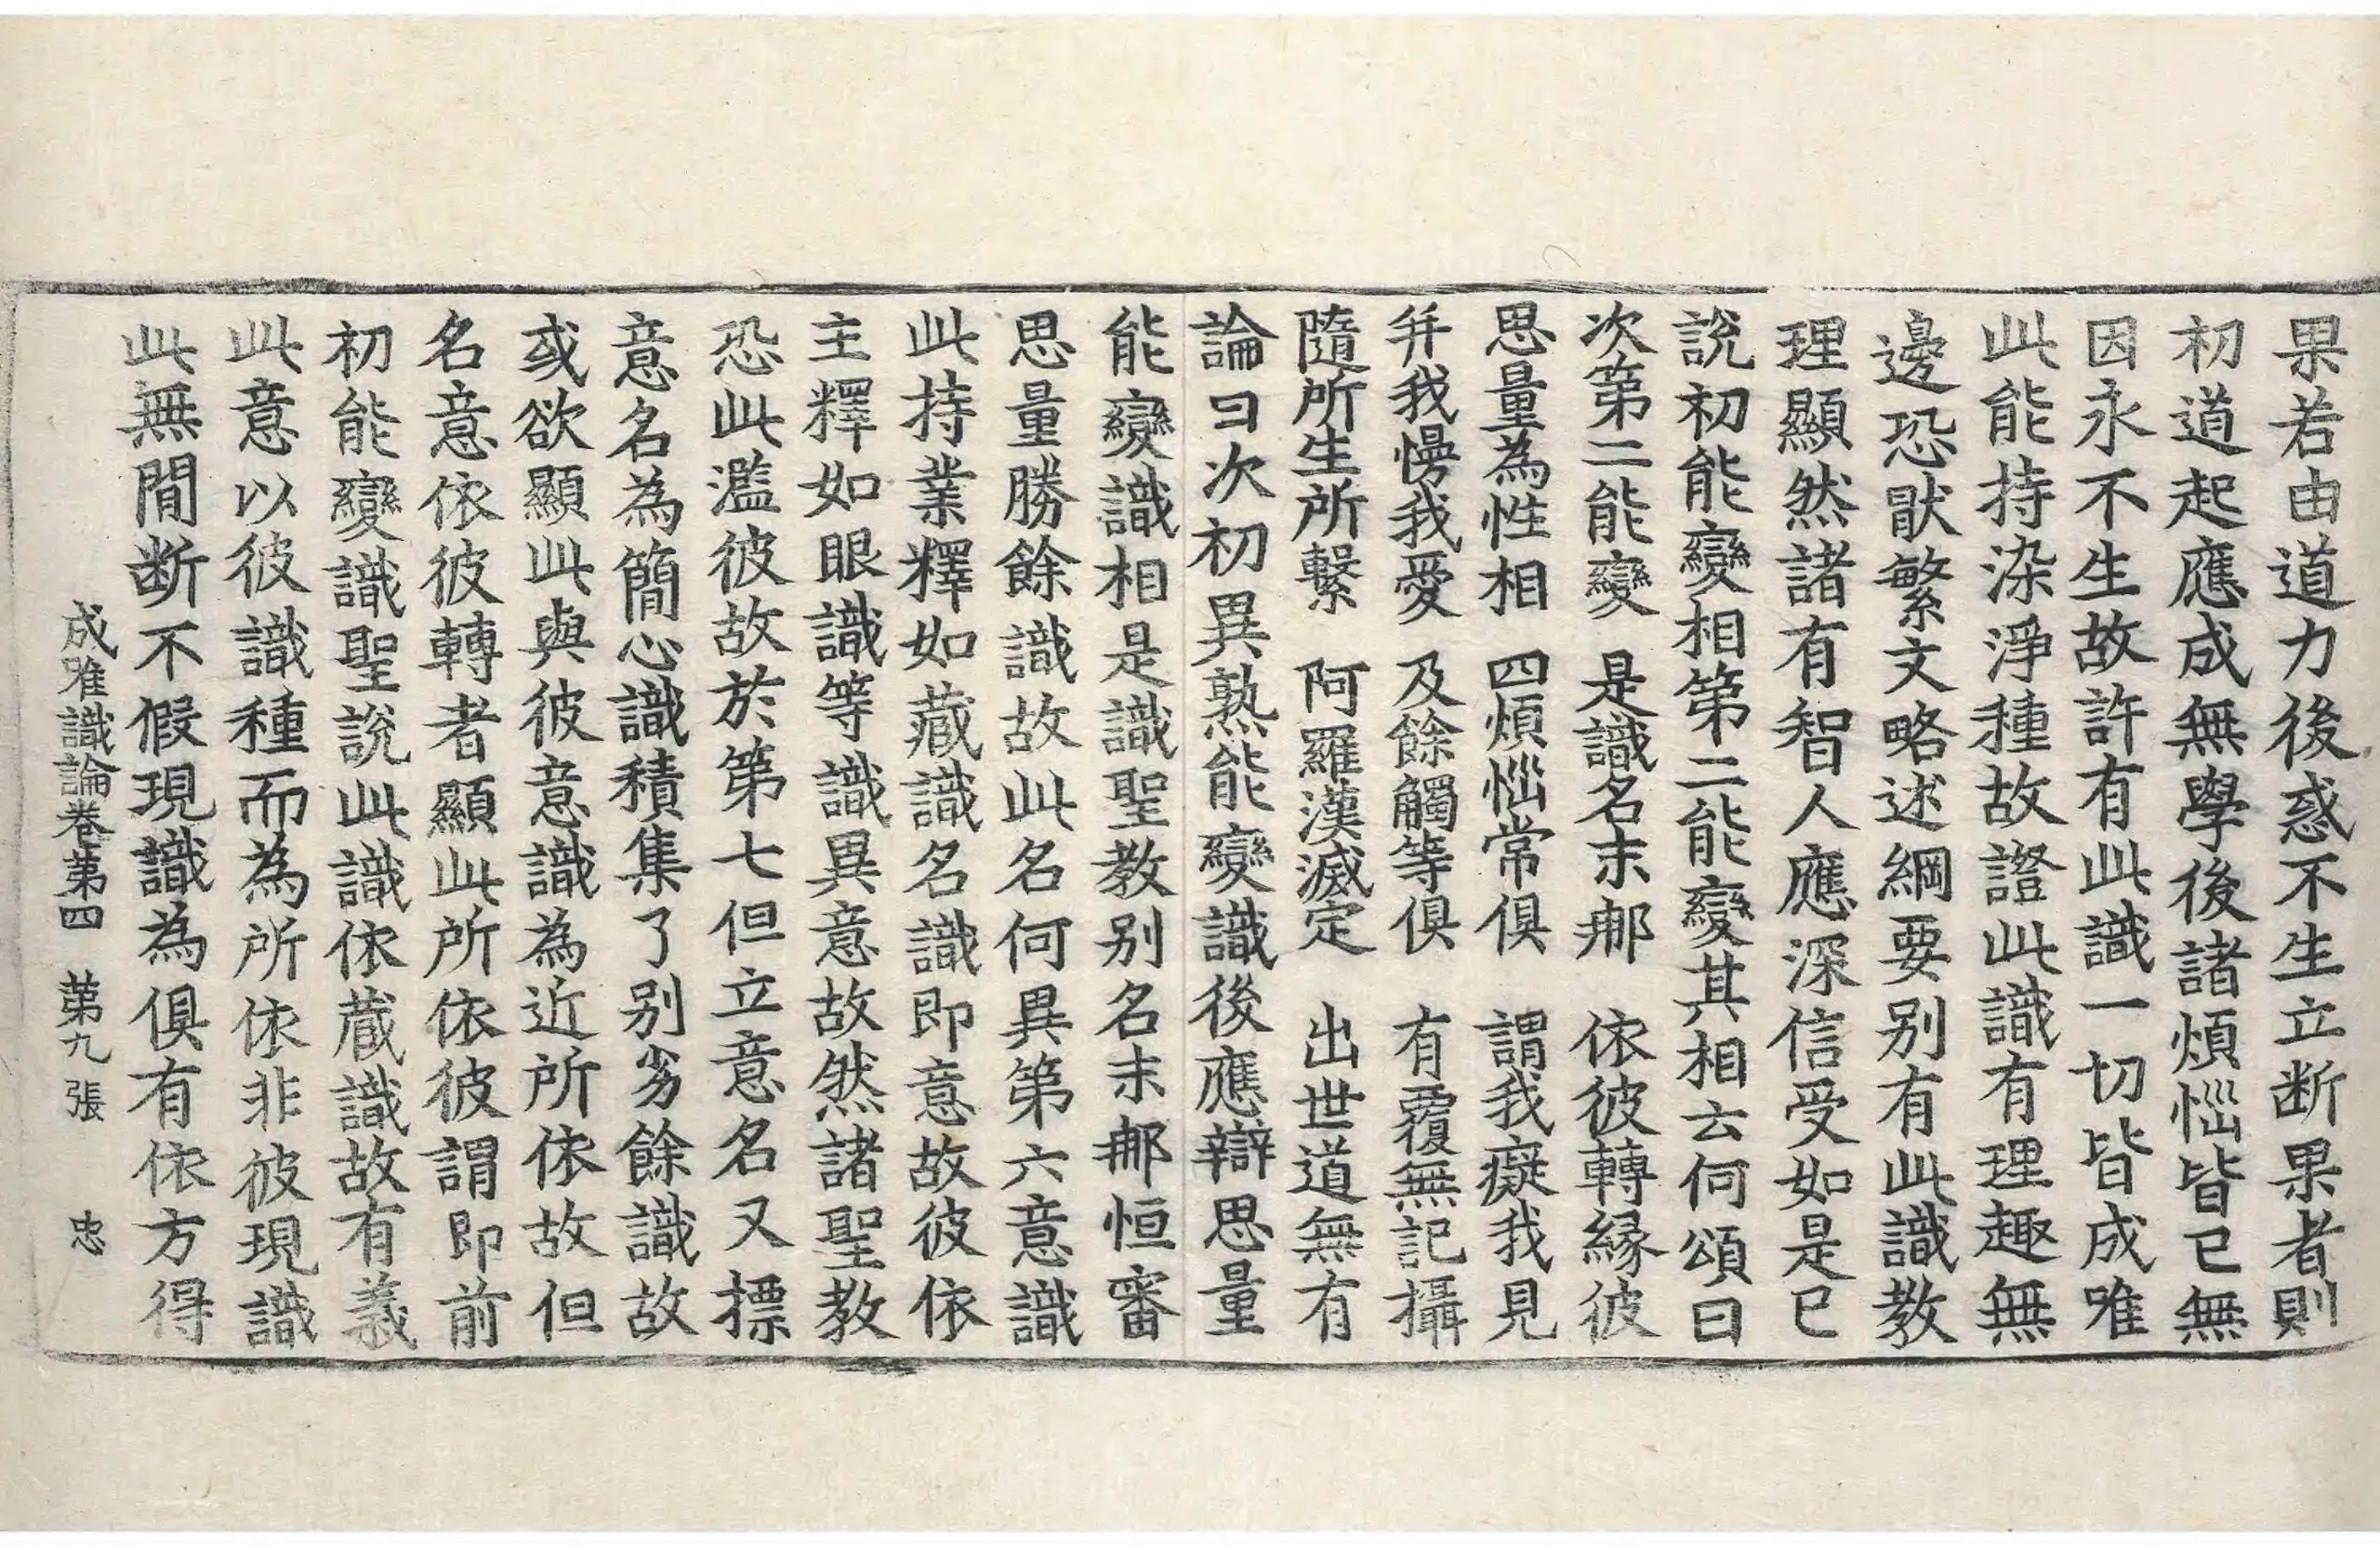 果若由道力後惑不生立断果者則
初道起應成無學後諸煩惱皆已無
因永不生故許有此識一切皆成唯
此能持染淨種故證此識有理趣無
邊恐猒繁文略述綱要别有此識教
理顯然諸有智人應深信受如是已
說初能變相第二能變其相云何頌曰
次第二能變 是識名末那 依彼轉縁彼
思量為性相 四煩惱常俱 謂我癡我見
并我慢我愛 及餘觸等俱 有覆無記攝
隨所生所繫 阿羅漢滅定 出世道無有
論曰次初異熟能變識後應辯思量
能變識相是識聖教别名末那恒審
思量勝餘識故此名何異第六意識
此持業釋如藏識名識即意故彼依
主釋如眼識等識異意故然諸聖教
恐此濫彼故於第七但立意名又標
意名為簡心識積集了别劣餘識故
或欲顯此與彼意識為近所依故但
名意依彼轉者顯此所依彼謂即前
初能變識聖說此識依藏識故有義
此意以彼識種而為所依非彼現識
此無間断不假現識為俱有依方得
成唯識論卷第四 第九張 忠